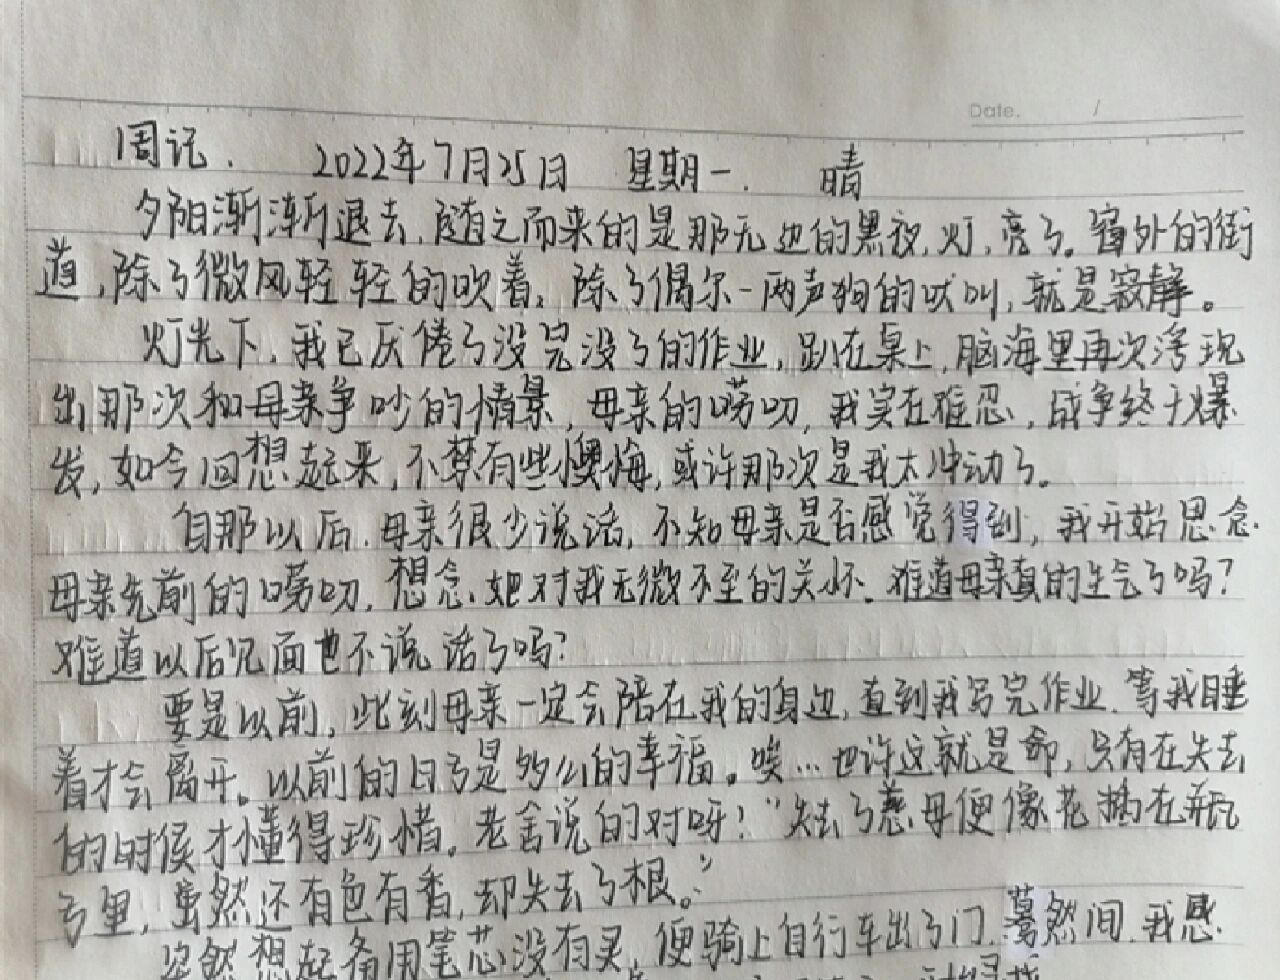 Date. /
周记. 2022年7月25日 星期一. 晴
夕阳渐渐退去,随之而来的是那无边的黑夜,灯,亮了。窗外的街
道,除了微风轻轻的吹着,除了偶尔一两声狗的吠叫,就是寂静。
灯光下,我已厌倦了没完没了的作业,趴在桌上,脑海里再次浮现
出那次和母亲争吵的情景,母亲的唠叨,我实在难忍,战争终于爆
发,如今回想起来,不禁有些懊悔,或许那次是我太冲动了。
自那以后,母亲很少说话,不知母亲是否感觉得到,我开始思念
母亲先前的唠叨,想念她对我无微不至的关怀。难道母亲真的生气了吗?
难道以后见面也不说话了吗?
要是以前,此刻母亲一定会陪在我的身边,直到我写完作业,等我睡
着才会离开。以前的日子是多么的幸福。唉...也许这就是命,只有在失去
的时候才懂得珍惜。老舍说的对呀!“失去了慈母便像花插在瓶
子里,虽然还有色有香,却失去了根。”
忽然想起备用笔芯没有买,便骑上自行车出了门,蓦然间,我感